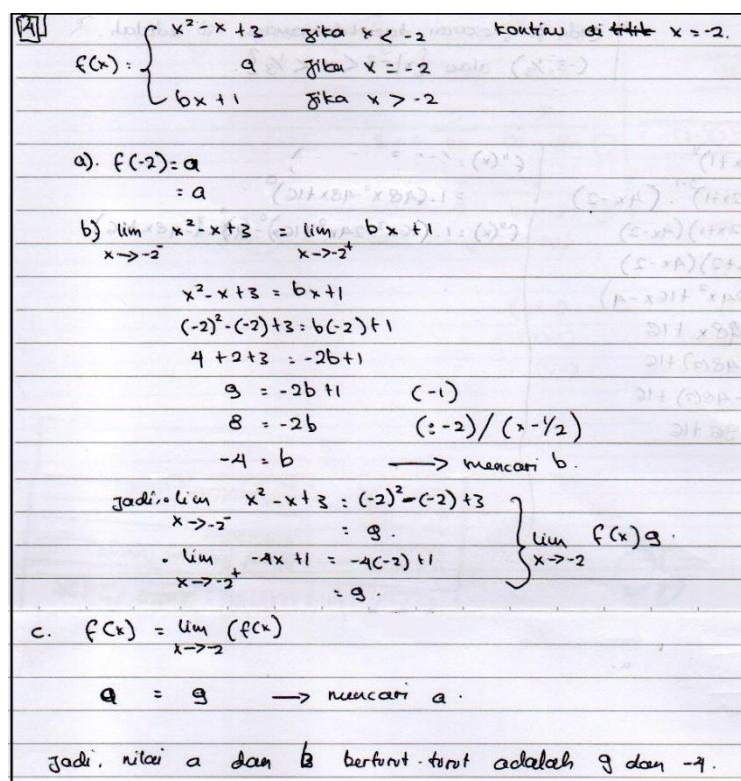 4 f(x) = { x² - x + 3 jika x < -2 kontinu di titik x = -2.
a jika x = -2
bx + 1 jika x > -2
a). f(-2) = a
= a
b) lim x→-2⁻ x² - x + 3 = lim x→-2⁺ bx + 1
x² - x + 3 = bx + 1
(-2)² - (-2) + 3 = b(-2) + 1
4 + 2 + 3 = -2b + 1
9 = -2b + 1 (-1)
8 = -2b (: -2) / (x -1/2)
-4 = b → mencari b.
Jadi, • lim x→-2⁻ x² - x + 3 = (-2)² - (-2) + 3
= 9.
• lim x→-2⁺ -4x + 1 = -4(-2) + 1
= 9
} lim x→-2 f(x) 9.
c. f(x) = lim x→-2 (f(x)
a = 9 → mencari a.
Jadi, nilai a dan b berturut-turut adalah 9 dan -4.